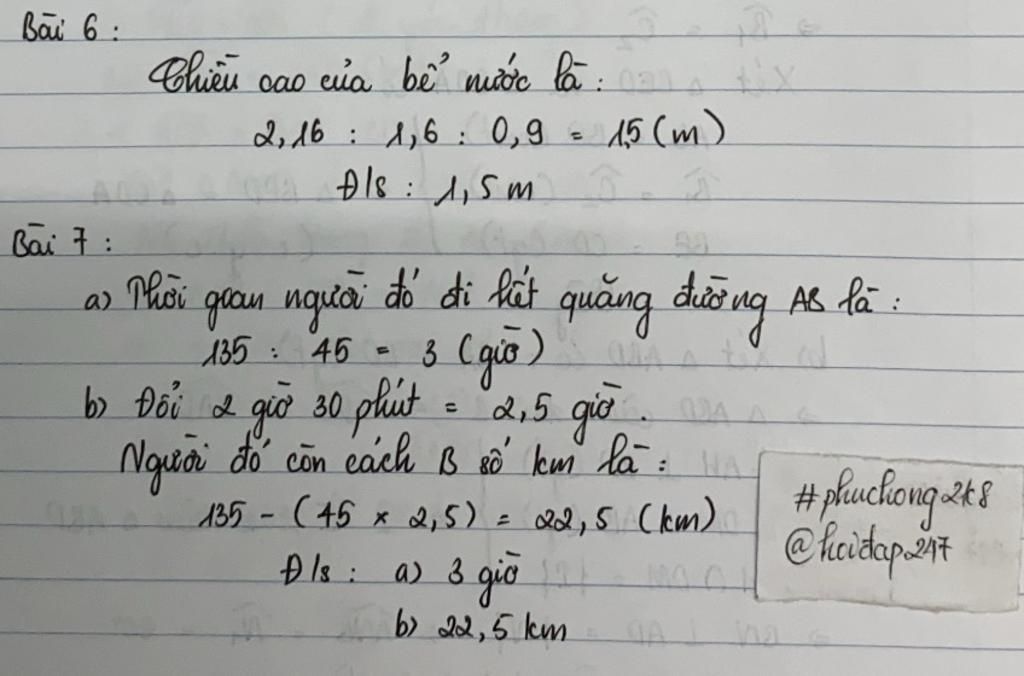 Bài 6 :
Chiều cao của bể nước là :
2,16 : 1,6 : 0,9 = 1,5 (m)
Đ/s : 1,5 m
Bài 7 :
a) Thời gian người đó đi hết quãng đường AB là :
135 : 45 = 3 (giờ)
b) Đổi 2 giờ 30 phút = 2,5 giờ .
Người đó còn cách B số km là :
135 - (45 × 2,5) = 22,5 (km)
Đ/s : a) 3 giờ
b) 22,5 km
#phuchong2k8
@hoidap247